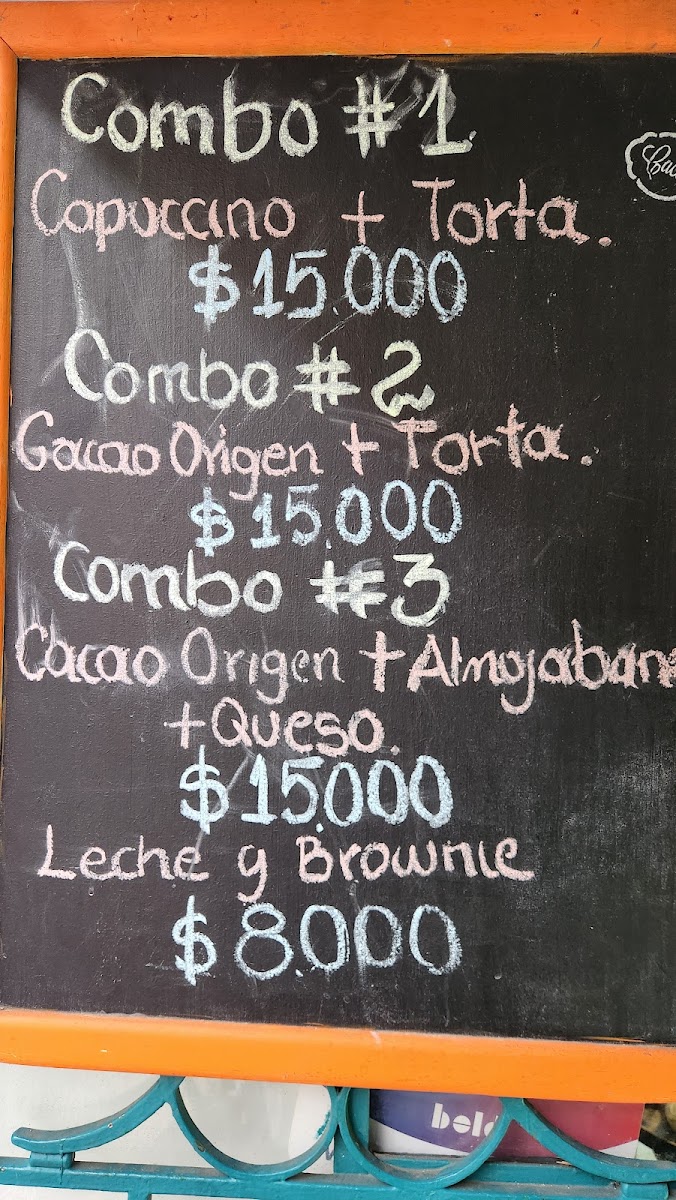 Combo #1
Capuccino + Torta.
$15.000
Combo #2
Cacao Origen + Torta.
$15.000
Combo #3
Cacao Origen + Almojabana
+ Queso.
$15.000
Leche y Brownie
$8.000
bold